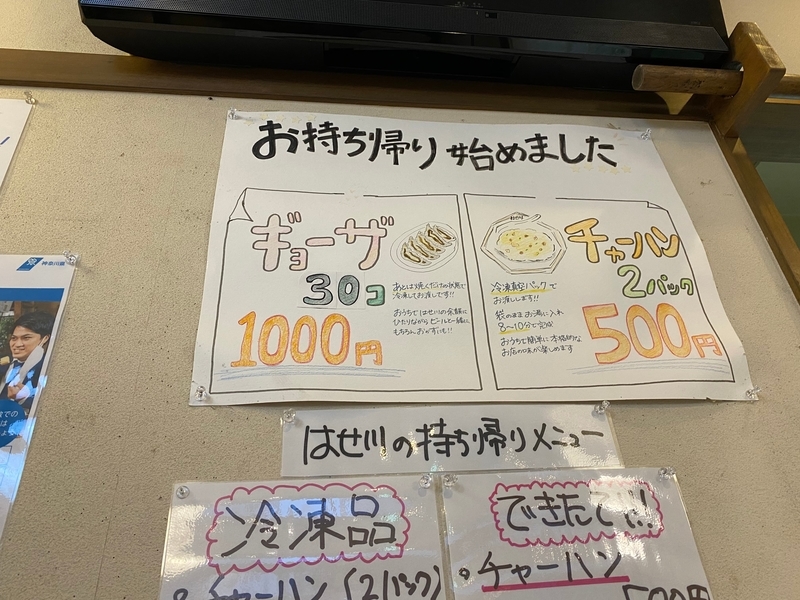 お持ち帰り始めました
ギョーザ
30コ
1000円
あとは焼くだけの状態で
冷凍してお渡しです!!
おうちではせ川の余韻に
ひたりながらビールと一緒に
もちろんおかずにも!!
チャーハン
2パック
500円
冷凍真空パックで
お渡しします!!
袋のままお湯に入れ
8~10分で完成
おうちで簡単に本格的な
お店の味が楽しめます
はせ川の持ち帰りメニュー
冷凍品
チャーハン(2パック)
できたて!!
・チャーハン
500円
神奈川県